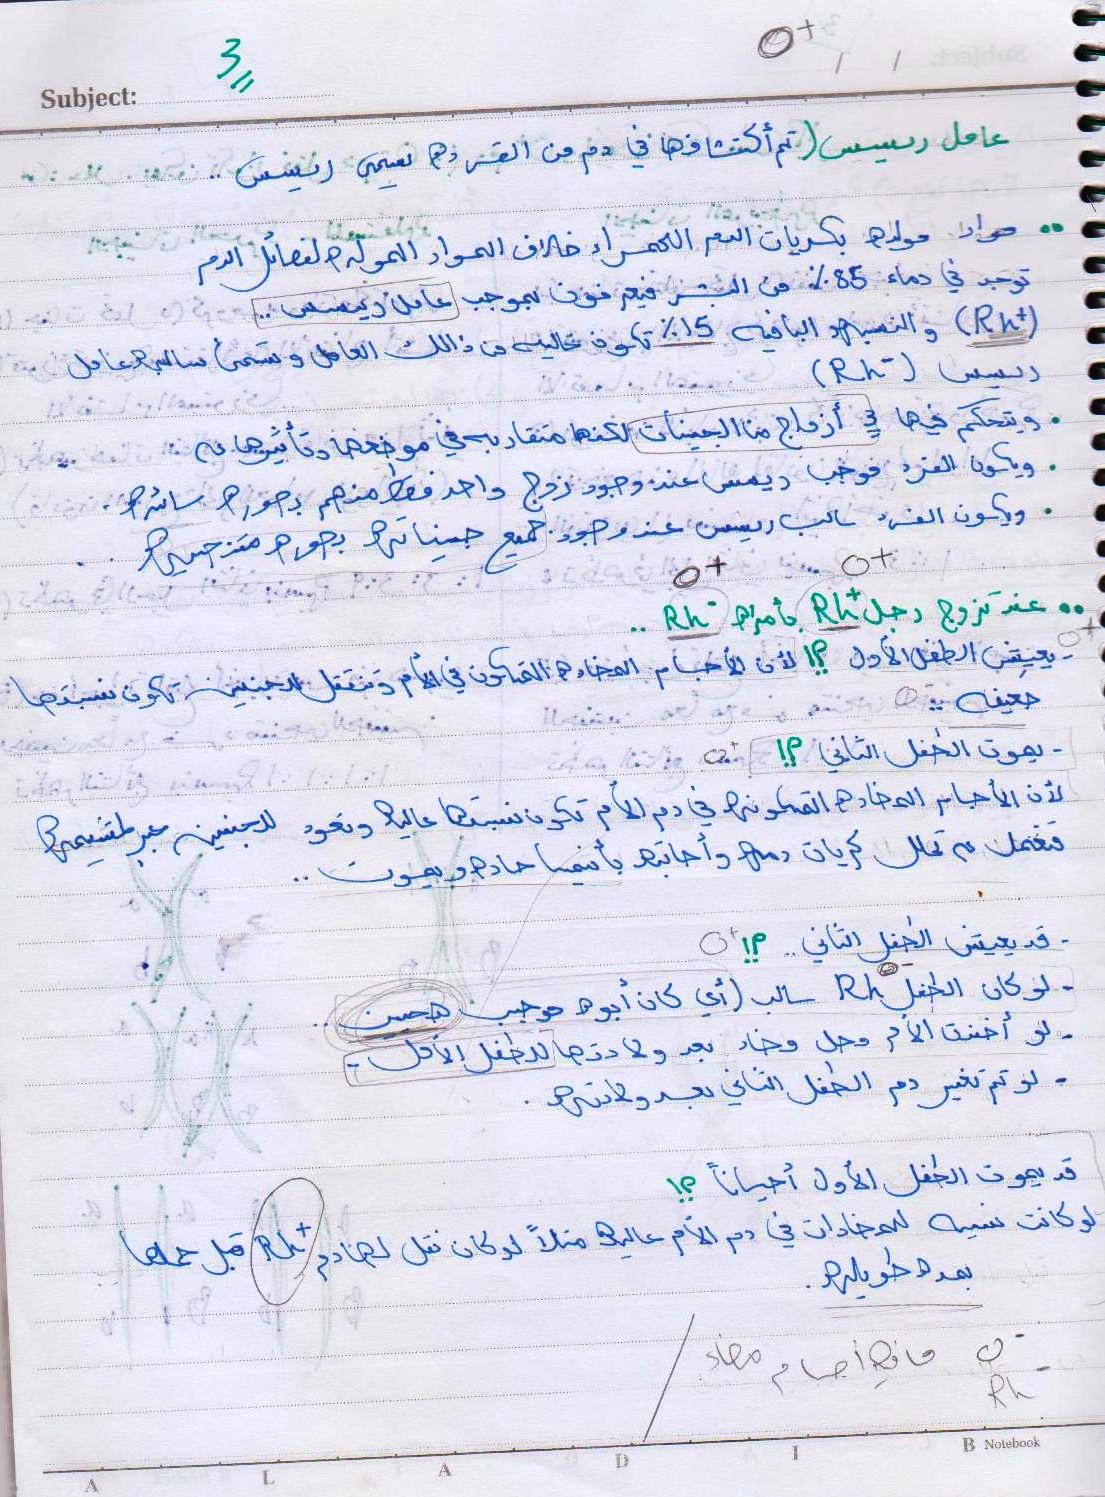 3
O+
Subject:
عامل ريسس (تم أكتشافها في دم من القرده يسمى ريسس ..
مواد مولده بكريات الدم الحمراء خلاف المواد المولده لفصائل الدم
توجد في دماء 85٪ من البشر فيعرفون بموجب عامل ريسس ..
(Rh+) والنسبه الباقيه 15٪ تكون خاليه من ذالك العامل وتسمى سالبه عامل
ريسس (Rh-)
. ويتحكم فيها 3 أزواج من الجينات لكنها متقاربه في موضعها وتأثيرها ..
. ويكون الفرد موجب ريسس عند وجود زوج واحد فقط منهم بصوره سائده .
. ويكون الفرد سالب ريسس عند وجود جميع جيناته بصوره متنحيه .
O+ O+
عند تزوج رجل Rh+ بأمراه Rh- ..
O+
- يعيش الطفل الأول ؟! لأن الأجسام المضاده المتكون في الأم وتنتقل للجنين تكون نسبتها
ضعيفه ..
- يموت الطفل الثاني ؟! O+
لأن الأجسام المضاده المتكونه في دم الأم تكون نسبتها عاليه وتعود للجنين عبر مشيمه
فتعمل ع تحلل كريات دمه وأصابته بأنيميا حاده ويموت ..
- قد يعيش الطفل الثاني .. ؟! O+
- لو كان الطفل Rh سالب (أي كان أبوه موجب هجين ..
- لو أخذت الأم مصل مضاد بعد ولادتها للطفل الأول -
- لو تم تغير دم الطفل الثاني بعد ولادته .
قد يموت الطفل الأول أحياناً ؟!
لو كانت نسبه المضادات في دم الأم عاليه مثلاً لو كان نقل لها دم Rh+ قبل حملها
بمده طويله .
O- مافيه أجسام مضاد
Rh-
A L A D I B Notebook